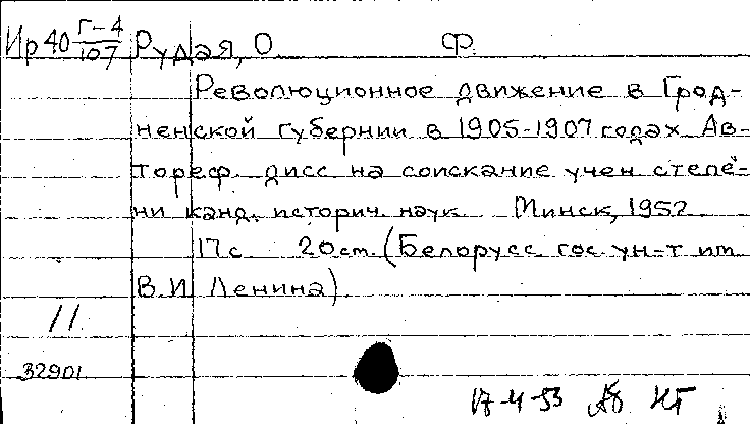 Ир 40 Г-4/107 Рудая, О. Ф.
Революционное движение в Грод-
ненской губернии в 1905-1907 годах. Ав-
тореф. дисс. на соискание учен. степе-
ни канд. историч. наук. Минск, 1952.
17 с. 20 см. (Белорусс. гос. ун-т им.
В.И. Ленина).
11
32901
17-4-53 КГ